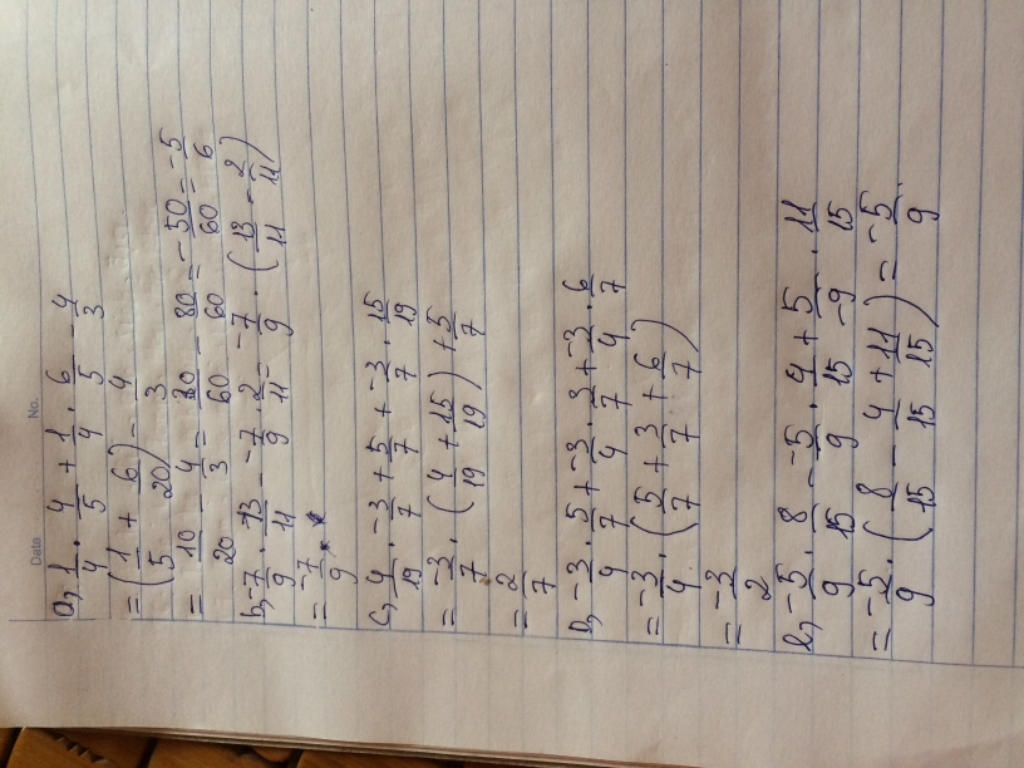 Date No.
a, 1/4 . 4/5 + 1/4 . 6/5 - 4/3
= (1/5 + 6/20) - 4/3
= 10/20 - 4/3 = 30/60 - 80/60 = -50/60 = -5/6
b, -7/9 . 13/11 - -7/9 . 2/11 = -7/9 . (13/11 - 2/11)
= -7/9
c, 4/19 . -3/7 + 5/7 + -3/7 . 15/19
= -3/7 . (4/19 + 15/19) + 5/7
= 2/7
D, -3/4 . 5/7 + -3/4 . 3/7 + -3/4 . 6/7
= -3/4 . (5/7 + 3/7 + 6/7)
= -3/2
e, -5/9 . 8/15 - -5/9 . 4/15 + 5/-9 . 11/15
= -5/9 . (8/15 - 4/15 + 11/15) = -5/9